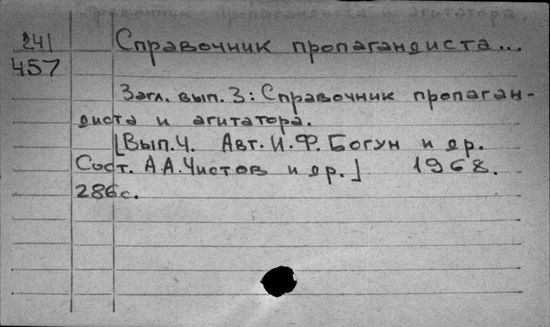 Справочник пропагандиста и агитатора.
241
457
Справочник пропагандиста...
Загл. вып. 3: Справочник пропаган-
диста и агитатора.
[Вып.4. Авт. И.Ф. Богун и др.
Сост. А.А.Чистов и др.] 1968.
286с.